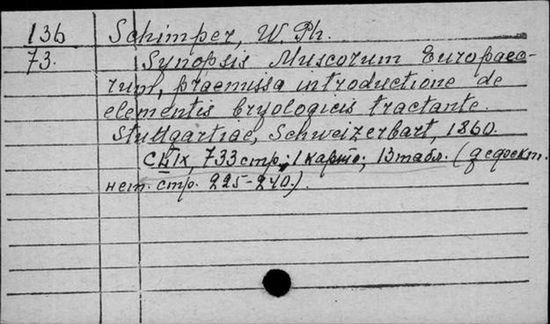 136 Schimper, W Ph.
73. Synopsis Muscorum Europaeo-
rum, praemissa introductione de
elementis bryologicis tractante.
Stuttgartiae, Schweizerbart, 1860.
733 стр.; 1 карта; 13 табл. (дефект.
нет. стр. 225-240.).